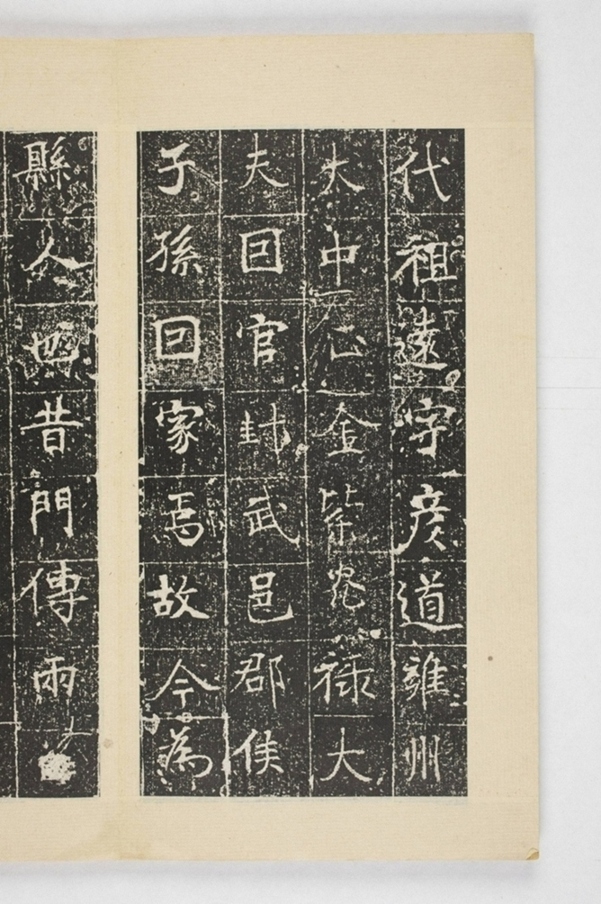 代祖遠字彦道雍州
大中正金紫光禄大
夫囙官封武邑郡侯
子孫囙家焉故今為
縣人也昔門傳雨